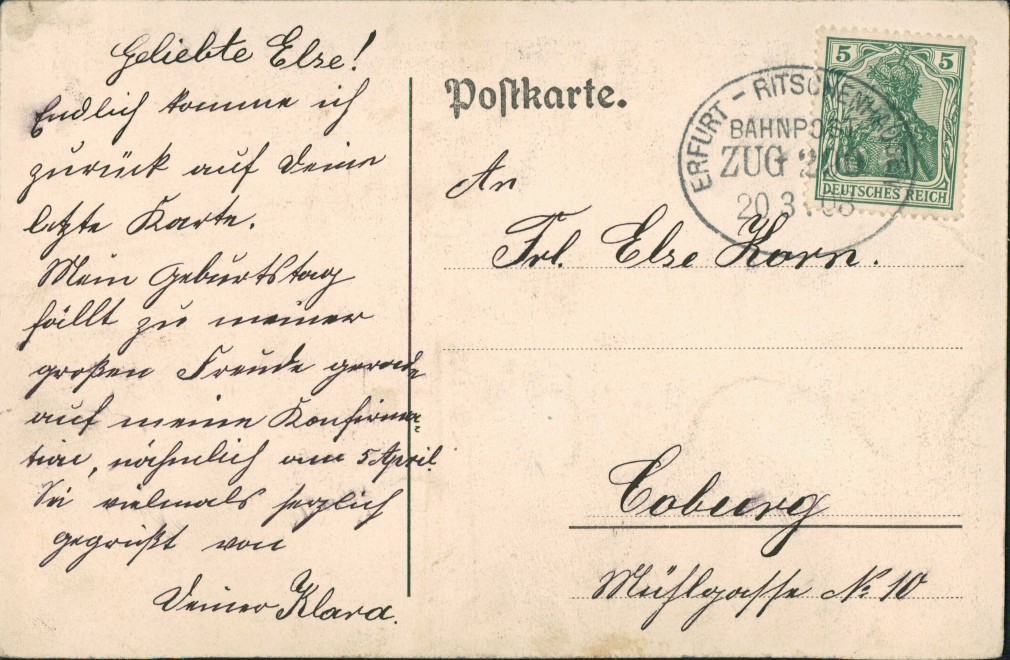 Geliebte Else!
Endlich komme ich
zurück auf Deine
letzte Karte.
Mein Geburtstag
fällt zu meiner
großen Freude gerade
auf meine Konfirma-
tion, nähmlich am 5 April.
Sei vielmals herzlich
gegrüßt von
Deiner Klara.
Postkarte.
An
Frl. Else Korn.
Coburg
Mühlgasse No 10
ERFURT - RITSCHENHAUSEN
BAHNPOST
ZUG
20 3 08
5 5
DEUTSCHES REICH